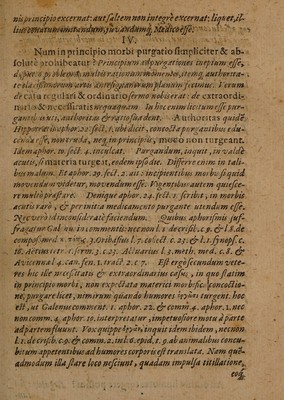 uis principio excernat: aut saltem non integrè excernat: liquet, il-
IV.
Num in principio morbi purgatio simpliciter & ab-
solutè prohibeatur? Principium ad purgationes ineptum esse,
rum
de cura regulari & ordinario sermo modo erat: de extraordi-
naria & necessitatis nequaquam. In hoc enim licitum esse pur-
authoritas & ratio suadent. Authoritas quidē
Hippocratis aphor. 22. sect. 1. ubi dicit, concocta purgantibus edu-
cenda esse, non cruda, neq, in principio, modo non turgeant.
Idem aphor. 10. sect. 4. inculcat. Purgandum, inquit, in valdè
acutis, si materia turgeat, eodem ipso die. Differre enim in tali-
bus malum. Et aphor. 29. sect. 2. ait: incipientibus morbis si quid
movendum videtur, movendum esse. Vigentibus autem quiesce-
re multò præstare. Denique aphor. 24. sect. 1. scribit, in morbis
acutis rarò, & per initia medicamento purgante utendum esse.
Nec verò id inconsideratè faciendum. Quibus aphorismis suf-
fragatur Galenus in commentis: nec non l. 1. de crisib. c. 9. & l. 8. de
Oribasius l. 7. collect. c. 25. & l. 1. synops. c.
16. Aëtius tetr. 1. serm. 3. c. 23. Actuarius l. 3. meth. med. c. 8. &
Avicenna l. 4. can. fen. 1. tract. 2. c. 7. Est ergò secundum vete-
res hic usus necessitatis & extraordinarius casus, in quo statim
in principio morbi, non expectata materiei morbificæ concoctio-
ne, purgare licet, nimirum quando humores turgent. hoc
est, ut Galenus comment. 1. aphor. 22. & comm. 4. aphor. 1. nec
non comm. 4. aphor. 10. interpretatur, impetuosiore motu à parte
ad partem fluunt. Vox quippe inquit idem ibidem, nec non
l. 1. de crisib. c. 9. & comm. 2. in l. 6. epid. t. 9. ab animalibus concu-
bitum appetentibus ad humores corporis est translata. Nam quē-
admodum illa stare loco nesciunt, quadam impulsa titillatione,
eoq;